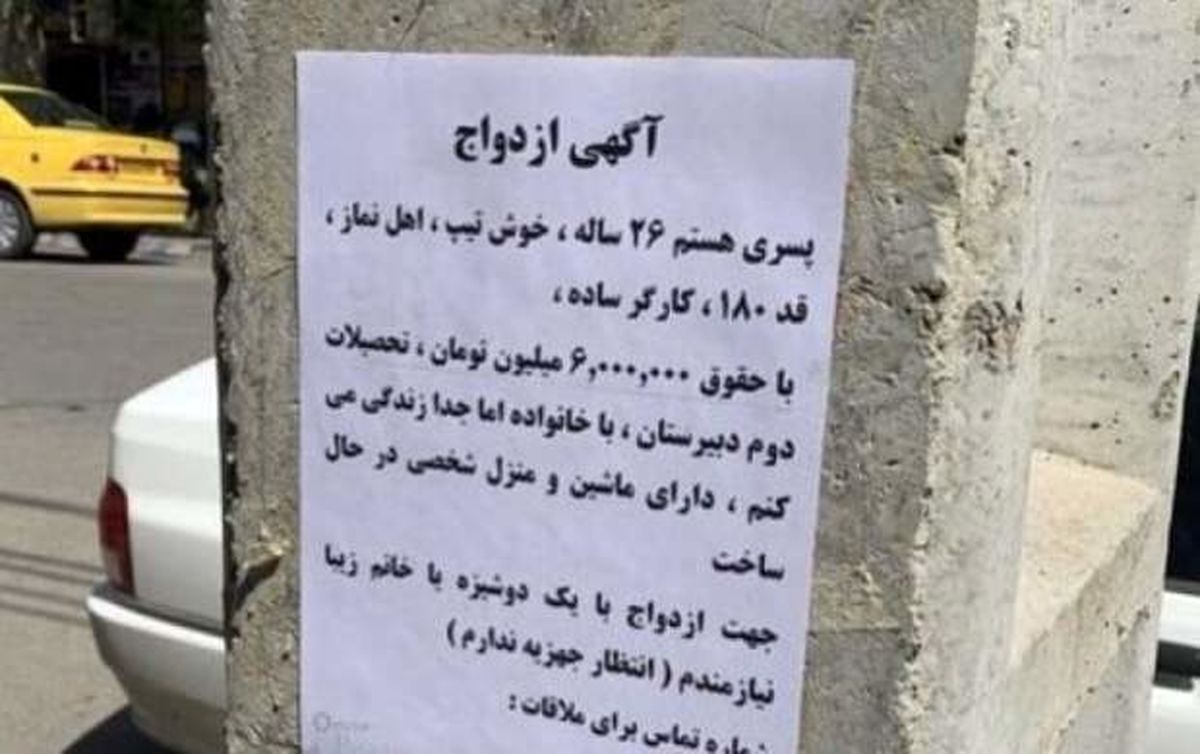 آگهی ازدواج
پسری هستم ۲۶ ساله ، خوش تیپ ، اهل نماز ،
قد ۱۸۰ ، کارگر ساده ،
با حقوق ۶,۰۰۰,۰۰۰ میلیون تومان ، تحصیلات
دوم دبیرستان ، با خانواده اما جدا زندگی می
کنم ، دارای ماشین و منزل شخصی در حال
ساخت
جهت ازدواج با یک دوشیزه یا خانم زیبا
نیازمندم ( انتظار جهزیه ندارم )
شماره تماس برای ملاقات :